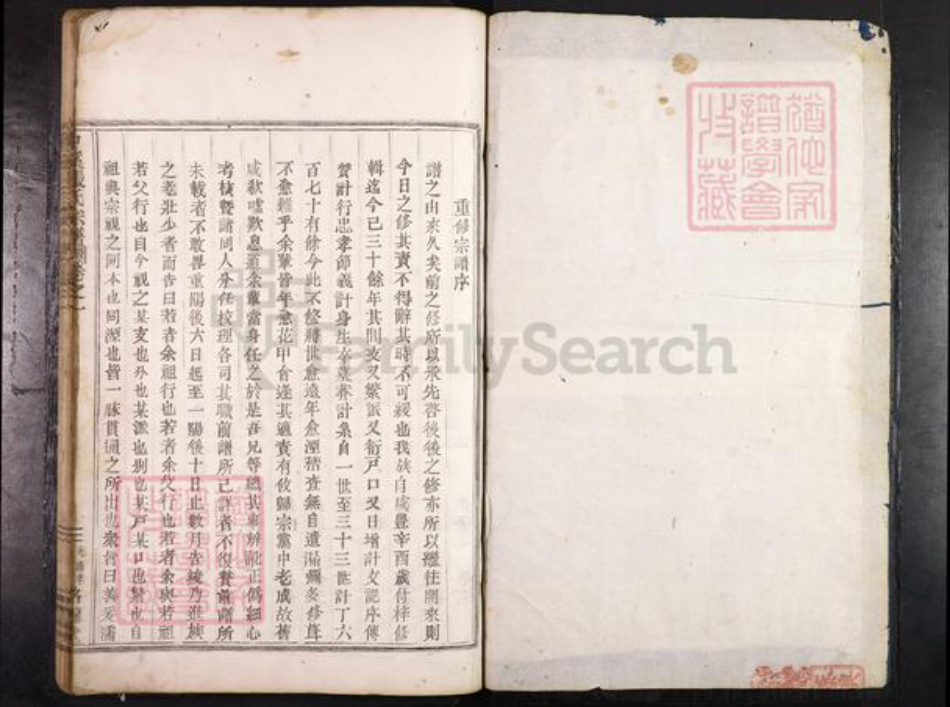 重修宗譜序
譜之由來久矣前之修所以承先啓後後之修亦所以繼往開來則
今日之修其責不得辭其時不可緩也我族自咸豐辛酉歲付梓修
輯迄今已三十餘年其間支又繁派又衍戶口又日增計文記序傳
贊計行忠孝節義計身生卒墓葬計系自一世至三十三世計丁六
百七十有餘今此不修將世愈遠年愈湮稽查無自遺漏彌多修葺
不愈難乎余輩皆年花甲會逢其適責有攸歸宗黨中老成故舊
咸欷噓歎息道余輩當身任之於是吾兄等總其事辨訛正僞細心
考核暨諸同人分任校理各司其職前譜所已詳者不復贅前譜所
未載者不敢畧重陽後六日起至一陽後十日止數月告竣乃進族
之老壯少者而告曰若者余祖行也若者余父行也若者余與若祖
若父行也自今視之某支也外也某派也別也某戶某口也繁也自
祖與宗視之同本也同源也皆一脉貫通之所出也衆皆曰善爰濡
氏宗譜
譜序
猶他家
譜學會
收藏
FamilySearch